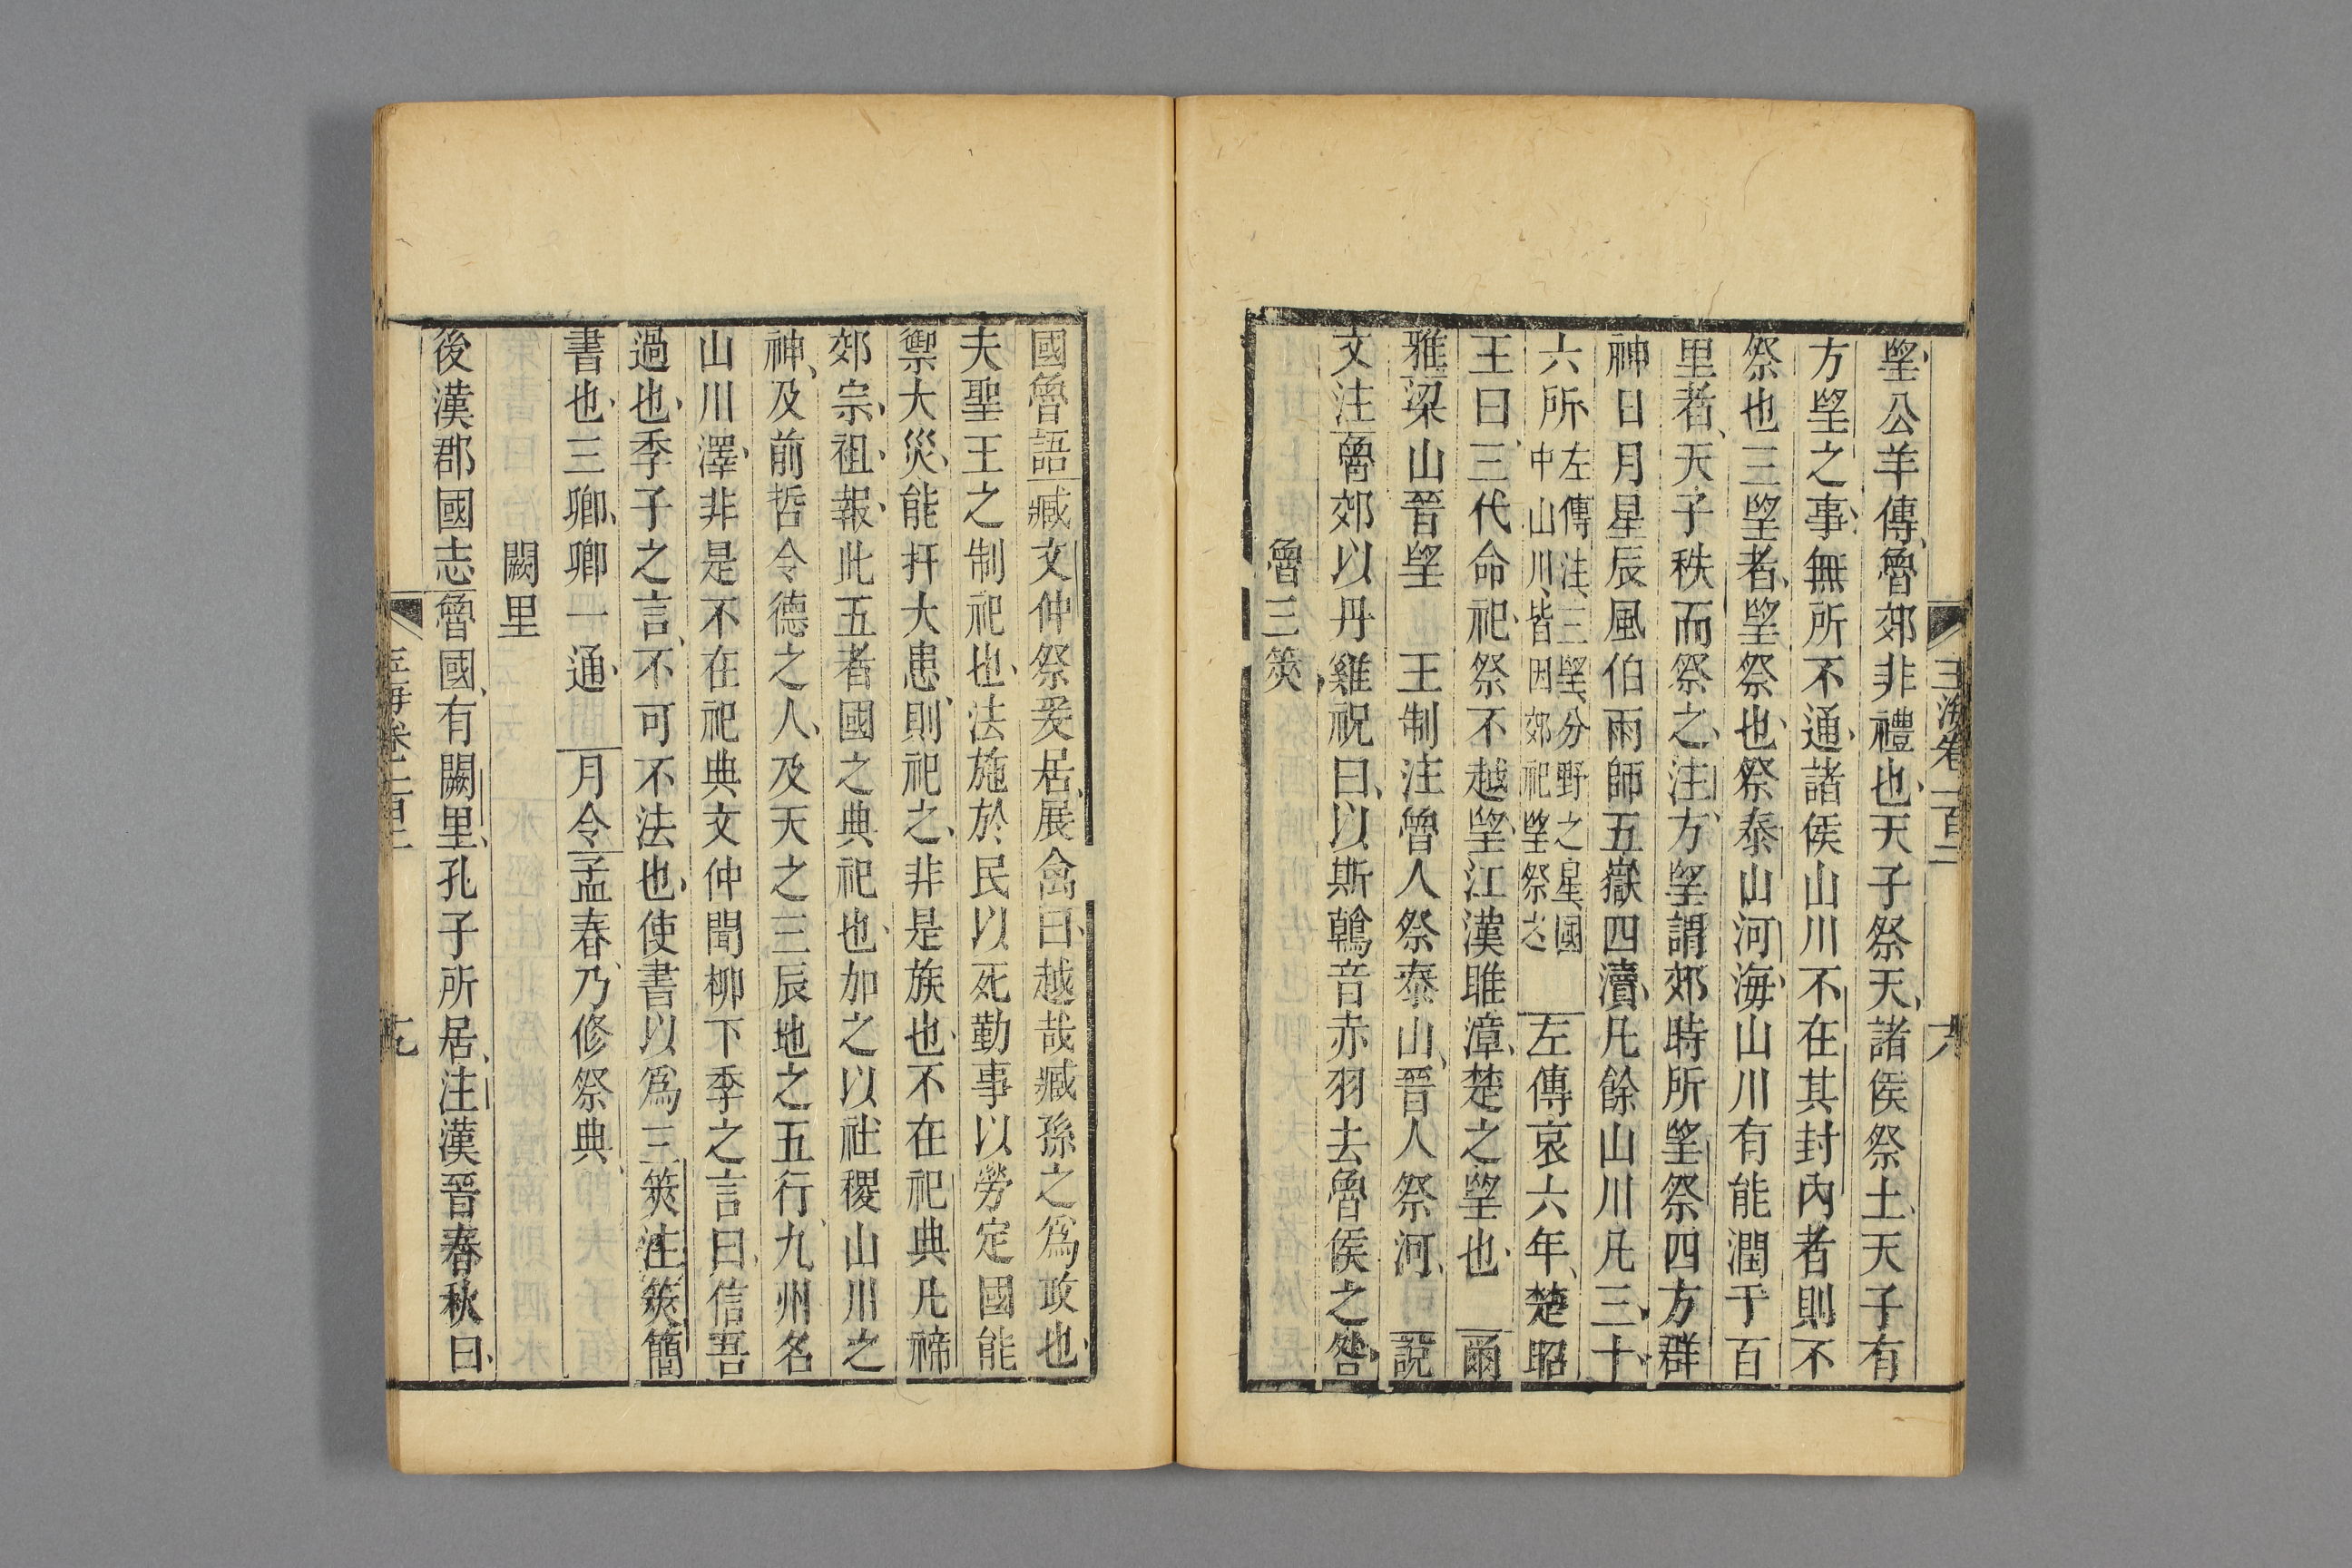 玉海卷一百二 六
望公羊傳魯郊非禮也天子祭天諸侯祭土天子有
方望之事無所不通諸侯山川不在其封內者則不
祭也三望者望祭也祭泰山河海山川有能潤于百
里者天子秩而祭之注方望謂郊時所望祭四方群
神日月星辰風伯雨師五嶽四瀆凡餘山川凡三十
六所左傳注三望分野之星國中山川皆因郊祀望祭之 左傳哀六年楚昭
王曰三代命祀祭不越望江漢雎漳楚之望也 爾
雅梁山晉望 王制注魯人祭泰山晉人祭河 說
文注魯郊以丹雞祝曰以斯鶾音赤羽去魯侯之咎
魯三筴
國魯語臧文仲祭爰居展禽曰越哉臧孫之爲政也
夫聖王之制祀也法施於民以死勤事以勞定國能
禦大災能扞大患則祀之非是族也不在祀典凡禘
郊宗祖報此五者國之典祀也加之以社稷山川之
神及前哲令德之人及天之三辰地之五行九州名
山川澤非是不在祀典文仲聞柳下季之言曰信吾
過也季子之言不可不法也使書以爲三筴注筴簡
書也三卿卿一通 月令孟春乃修祭典
闕里
後漢郡國志魯國有闕里孔子所居注漢晉春秋曰